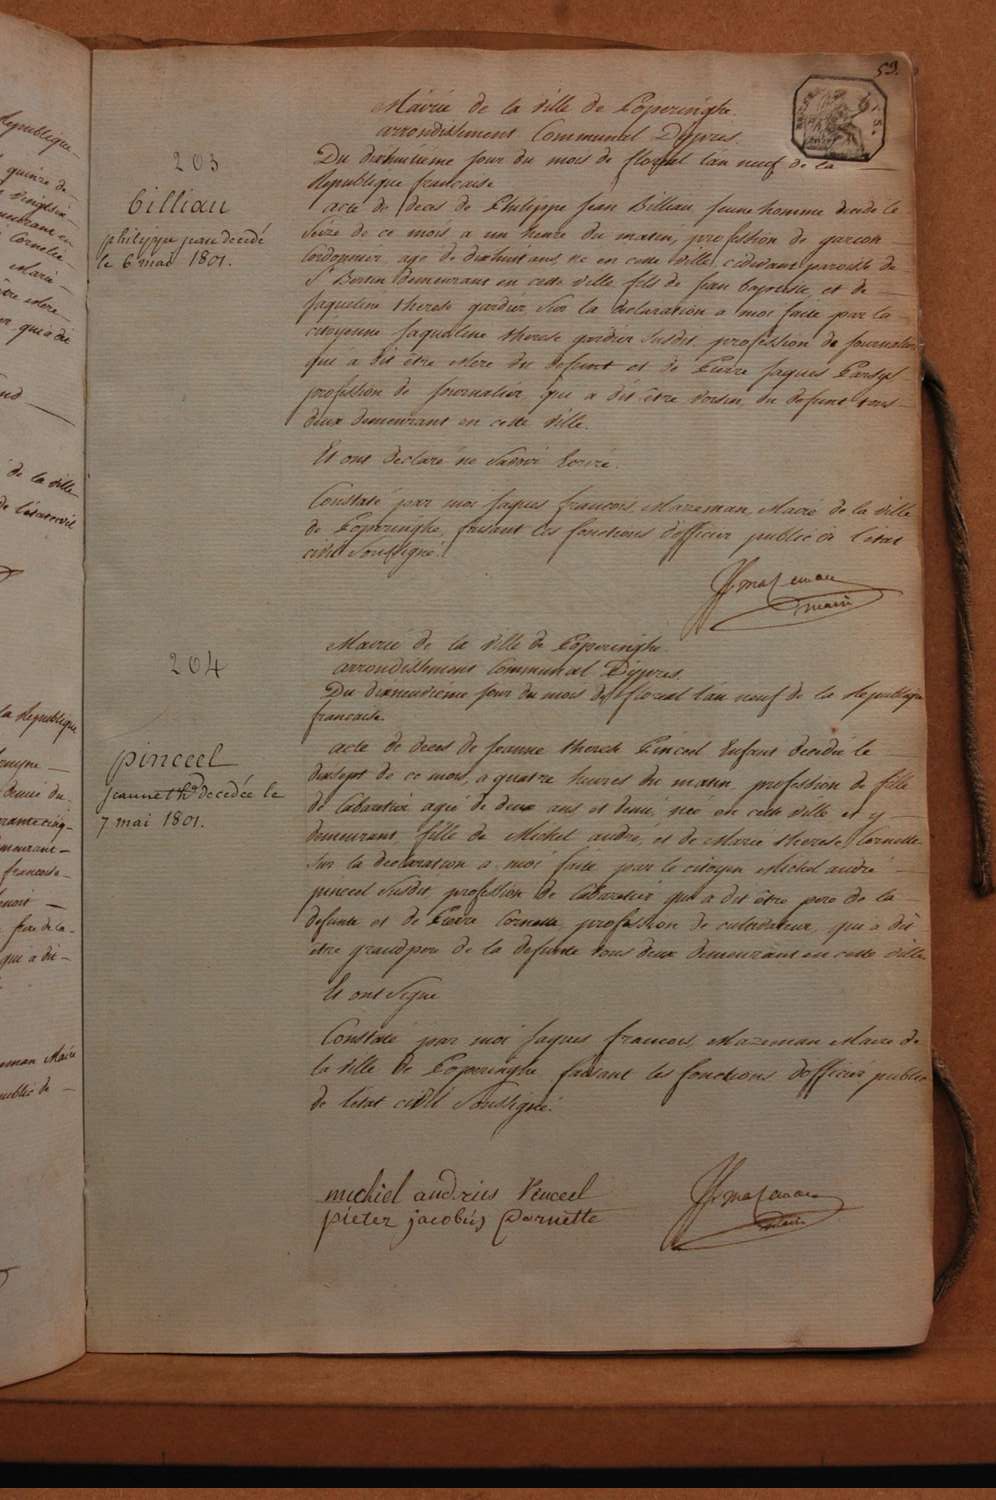 59.
203
billiau
philippe jean decedé
le 6 mai 1801.
Mairie de la ville de Poperinghe
arrondissement Communal Dypres.
Du dixhuitieme jour du mois de floreal l'an neuf de la
Republique francaise
acte de deces de Philippe Jean Billiau, jeune homme decedé le
seize de ce mois a un heure du matin, profession de garcon
Cordonnier agé de dixhuit ans, né en cette ville, cidevant paroisse de
St Bertin demeurant en cette ville, fils de jean baptiste et de
jaqueline therese gardier, Sur la declaration a moi faite par la
citoyenne jaqueline therese gardier susdit profession de journalier,
qui a dit être Mere du defunt et de Pierre jaques
profession de journalier, qui a dit être voisin du defunt tous
deux demeurant en cette ville.
Et ont declaré ne Savoir Ecrire.
Constaté par moi jaques francois Mazeman, Maire de la ville
de Poperinghe, faisant les fonctions d'officier public de l'etat
civil Soussigné.
Mazeman
maire
204
pinceel
jeanne the decedée le
7 mai 1801.
Mairie de la ville de Poperinghe
arrondissement Communal Dypres.
Du dixneuvieme jour du mois de floreal l'an neuf de la Republique
francaise
acte de deces de jeanne therese Pinceel Enfant decedée le
dixsept de ce mois, a quatre heures du matin, profession de fille
de Cabaretier agée de deux ans et demi, née en cette ville et y
demeurant, fille de Michel andré, et de Marie therese Cornette
Sur la declaration a moi faite par le citoyen Michel andré
pinceel Susdit, profession de Cabaretier qui a dit être pere de la
defunte et de Pierre Cornette, profession de cultivateur, qui a dit
être grandpere de la defunte tous deux demeurant en cette ville
Et ont Signé
Constaté par moi jaques francois Mazeman Maire de
la ville de Poperinghe faisant les fonctions d'officier public
de l'etat civil Soussigné.
michiel andries Pinceel
pieter jacobus Cornette
Mazeman
maire